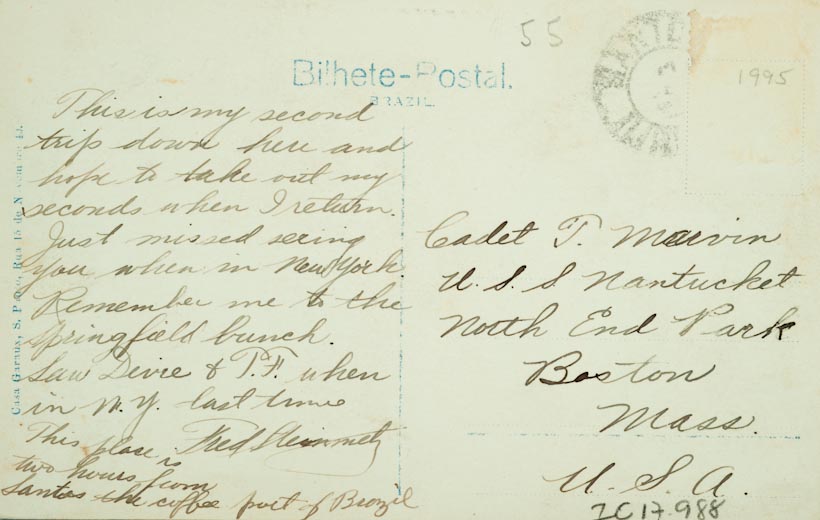 55
1995
Bilhete-Postal.
BRAZIL.
This is my second
trip down here and
hope to take out my
seconds when I return.
Just missed seeing
you when in New York.
Remember me to the
Springfield bunch.
Saw Devie & T.F. when
in N.Y. last time
Fred Steinmetz
This place is
two hours from
Santos the coffee port of Brazil
Cadet T. Marvin
U.S.S. Nantucket
North End Park
Boston
Mass.
U.S.A.
2C17-988
Casa Garaux, S. Paulo, Rua 15 de Novembro